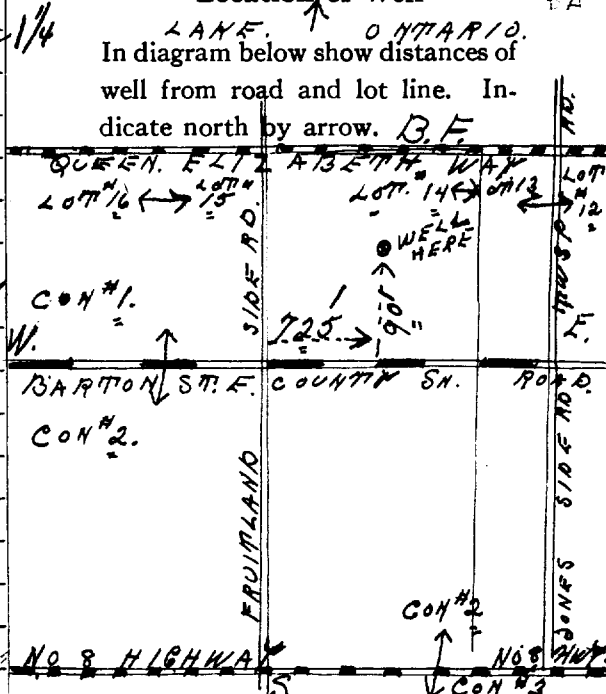 1 1/4
LAKE. ONTARIO.
In diagram below show distances of
well from road and lot line. In-
dicate north by arrow. B.F.
QUEEN. ELIZABETH WAY
LOT #16 LOT # 15
LOT. # 14 LOT 13
LOT # 12
WELL
HERE
CON #1.
SIDE RD.
725'
901'
TWSP RD.
W.
E.
BARTON ST. E. COUNTY SN. ROAD.
CON #2.
FRUITLAND
JONES SIDE RD
CON #2
NO 8 HIGHWAY
NO 8 HWY
S
CON #3